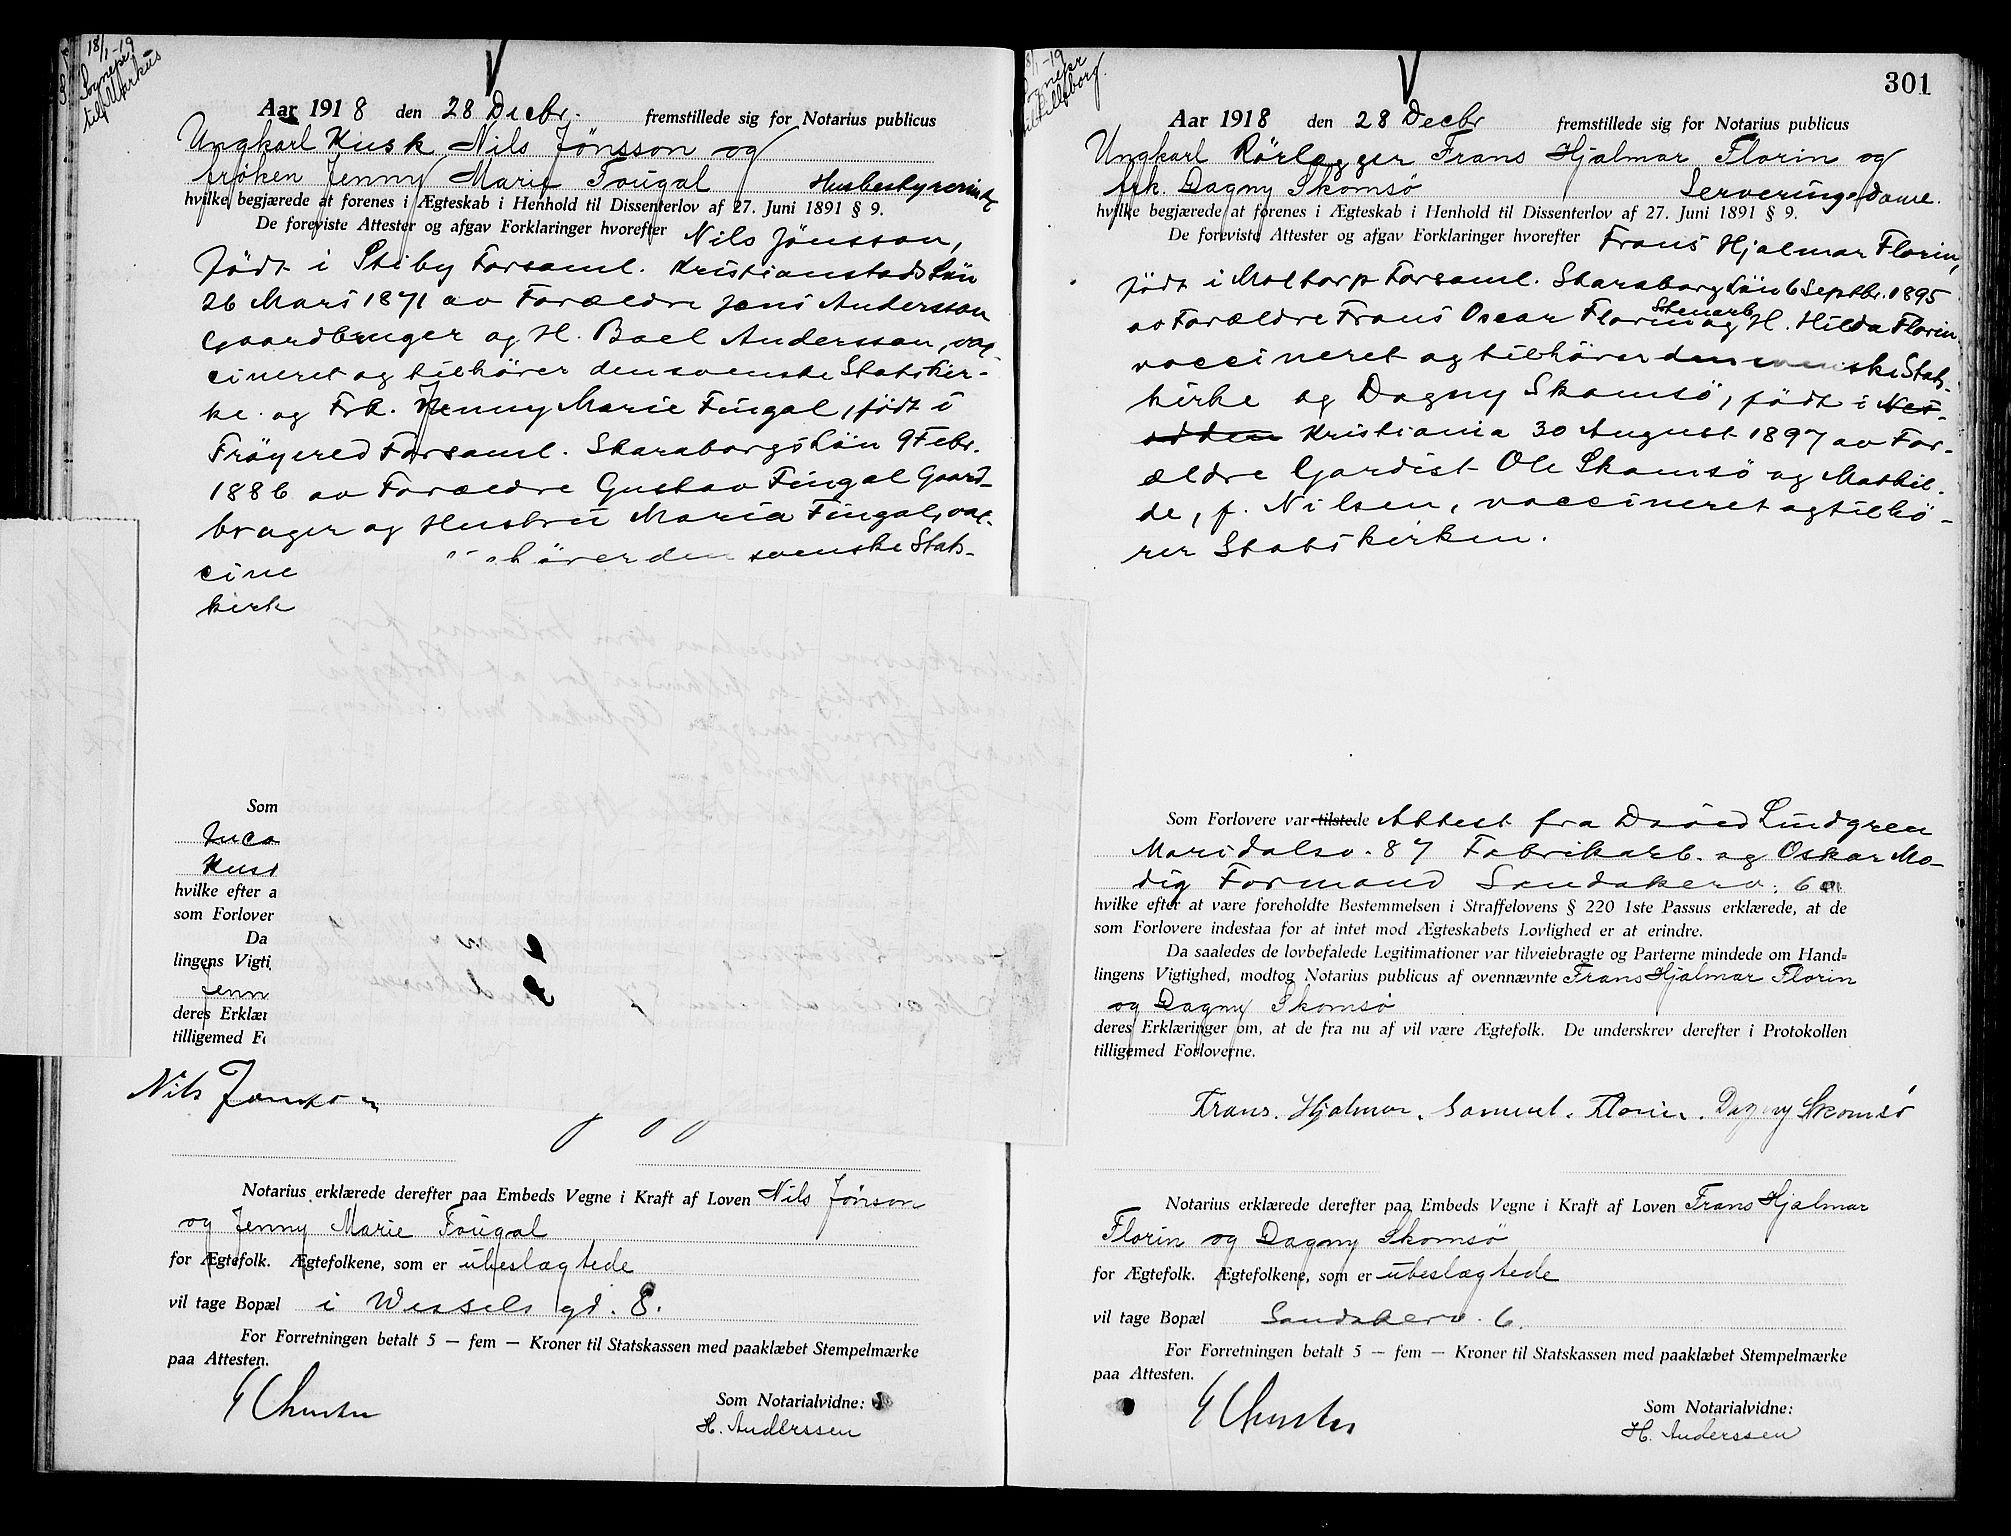 18/1-19
Sognepr
til Markus
Aar 1918 den 28 Decbr. fremstillede sig for Notarius publicus
Ungkarl Kusk Nils Jönsson og
frøken Jenny Marie Fougal Husbestyrerinde
hvilke begjærede at forenes i Ægteskab i Henhold til Dissenterlov af 27. Juni 1891 § 9.
De foreviste Attester og afgav Forklaringer hvorefter Nils Jönsson,
födt i Stiby Forsaml. Kristianstads Län
26 Mars 1871 av Forældre Jöns Andersson
Gaardbruger og H. Boel Andersson, vac-
cineret og tilhörer den svenske Statskir-
ke. og Frk. Jenny Marie Fingal, födt i
Fröyered Forsaml. Skaraborgs Län 9 Febr.
1886 av Forældre Gustav Fingal Gaard-
bruger og Hustru Maria Fingal, vac-
cine hörer den svenske Stats-
kirk
Som
Kusk
hvilke efter a
som Forlover
Da
lingens Vigti
Jenn
deres Erklær
tilligemed Fo
Nils Jönsson
Notarius erklærede derefter paa Embeds Vegne i Kraft af Loven Nils Jönson
og Jenny Marie Fougal
for Ægtefolk. Ægtefolkene, som er ubeslægtede
vil tage Bopæl i Wessels gd. 8.
For Forretningen betalt 5 — fem — Kroner til Statskassen med paaklæbet Stempelmærke
paa Attesten.
Som Notarialvidne:
H. Anderssen
301
8/1-19
Aar 1918 den 28 Decbr fremstillede sig for Notarius publicus
Ungkarl Rörlægger Frans Hjalmar Florin og
frk. Dagny Skomsö Serveringsdame.
hvilke begjærede at forenes i Ægteskab i Henhold til Dissenterlov af 27. Juni 1891 § 9.
De foreviste Attester og afgav Forklaringer hvorefter Frans Hjalmar Florin,
födt i Moltorp Forsaml. Skaraborg Län 6 Septbr. 1895
av Forældre Frans Oscar Florin Stenarb. og H. Hilda Florin,
vaccineret og tilhörer den svenske Stats-
kirke og Dagny Skomsö, födt i Nes-
odden Kristiania 30 August 1897 av For-
ældre Gardist Ole Skomsö og Mathil-
de, f. Nilsen, vaccineret og tilhö-
rer Statskirken.
Som Forlovere var tilstede Attest fra David Lindgren
Maridalsv. 87 Fabrikarb. og Oskar Mo-
dig Formand Sandakerv. 6
hvilke efter at være foreholdte Bestemmelsen i Straffelovens § 220 1ste Passus erklærede, at de
som Forlovere indestaa for at intet mod Ægteskabets Lovlighed er at erindre.
Da saaledes de lovbefalede Legitimationer var tilveiebragte og Parterne mindede om Hand-
lingens Vigtighed, modtog Notarius publicus af ovennævnte Frans Hjalmar Florin
og Dagny Skomsö
deres Erklæringer om, at de fra nu af vil være Ægtefolk. De underskrev derefter i Protokollen
tilligemed Forloverne.
Frans. Hjalmar. Samuel. Florin. Dagny Skomsö
Notarius erklærede derefter paa Embeds Vegne i Kraft af Loven Frans Hjalmar
Florin og Dagny Skomsö
for Ægtefolk. Ægtefolkene, som er ubeslægtede
vil tage Bopæl Sandakerv. 6.
For Forretningen betalt 5 — fem — Kroner til Statskassen med paaklæbet Stempelmærke
paa Attesten.
Som Notarialvidne:
H. Anderssen